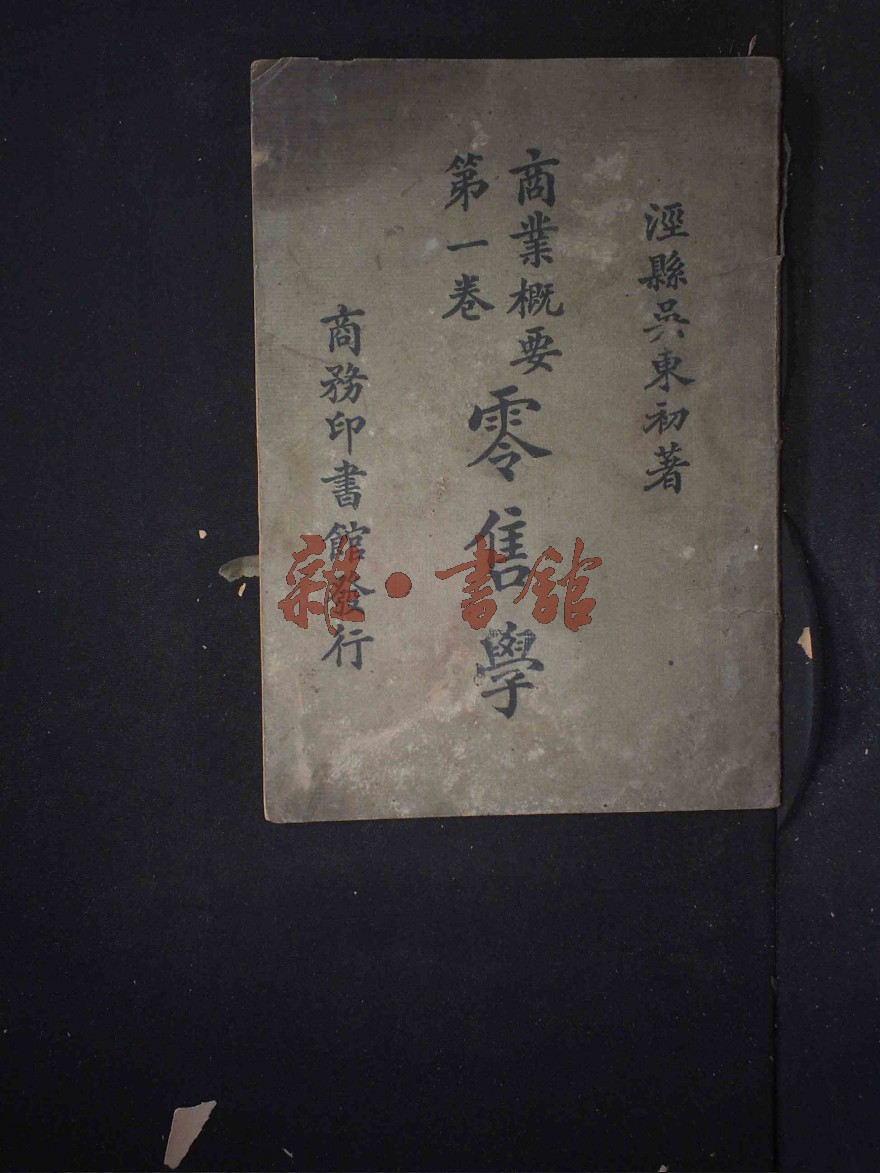 涇縣吳東初著
商業概要
第一卷
零售學
商務印書館發行
雜·書館